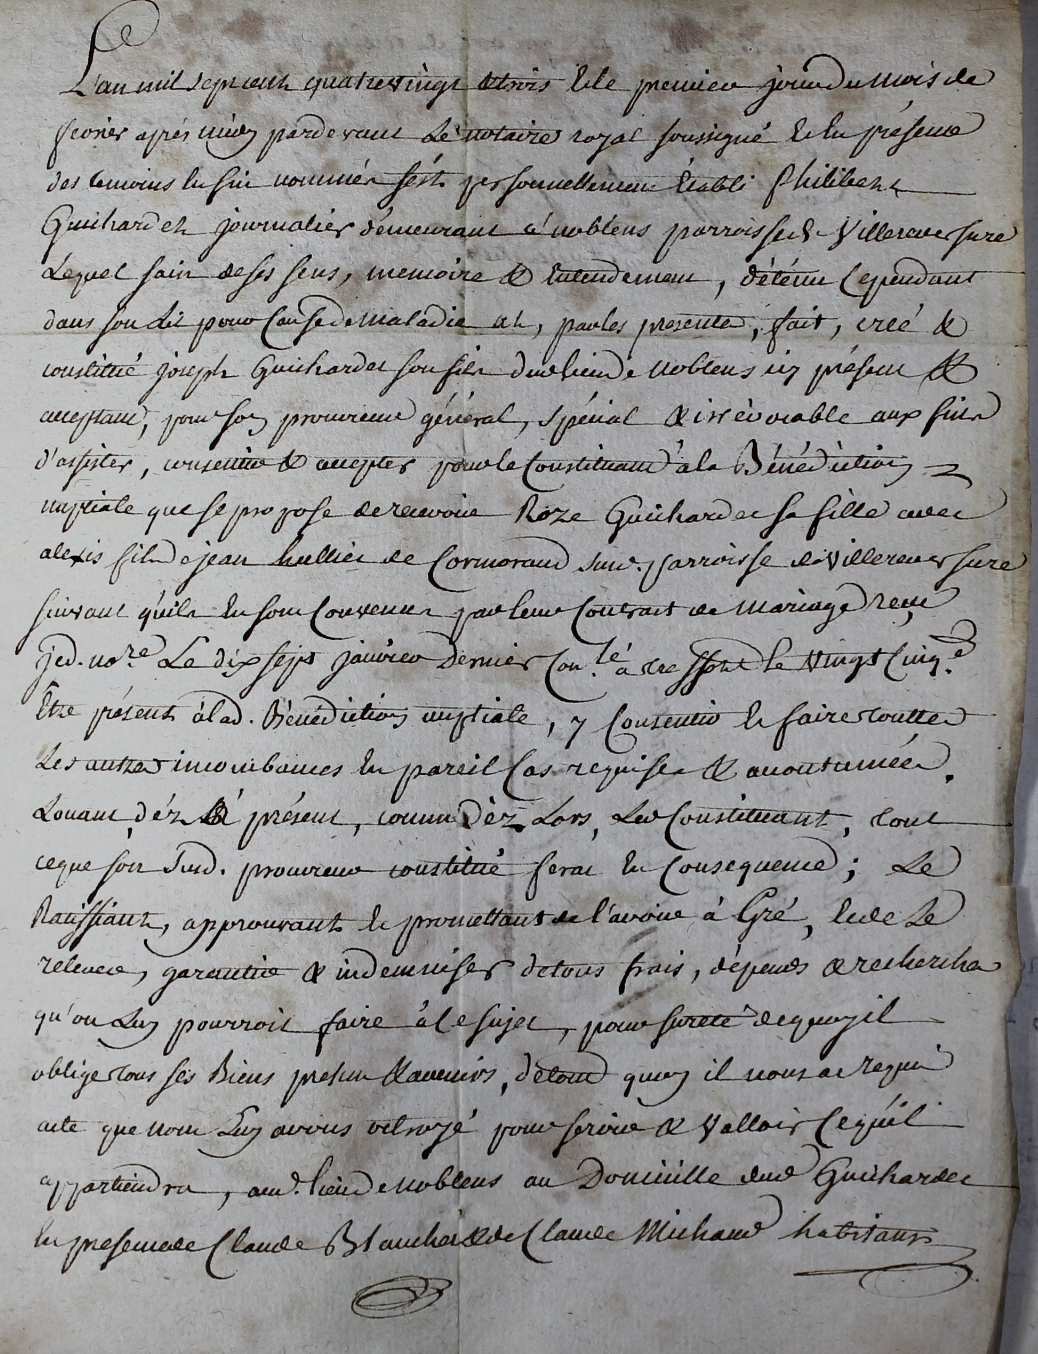 L'an mil sept cent quatre vingt & trois & le premier jour du mois de
fevrier aprés midy pardevant Le notaire royal soussigné & En présence
des temoins En fin nommés s'est personnellement Etabli Philibert
Guichardet journalier demeurant à noblens parroisse de Villereversure
Lequel sain de ses sens, memoire & Entendement, détenu Cependant
dans son Lit pour Cause de maladie a, par les presentes, fait, creé &
constitué joseph Guichardet son fils dud. lieu de noblens icy présent &
acceptant, pour son procureur général, spécial & irrévocable aux fins
d'assister, consentir & accepter pour le Constituant à la Bénédiction
nuptiale que se propose de recevoir Roze Guichardet sa fille avec
alexis fils de jean hullier de Cormorand sud. parroisse de Villereversure
suivant qu'ils En sont Convenus par leur Contrat de mariage Reçu
jed. no.re Le dix sept janvier Dernier Con.lé à le vingt Cinq.e
Etre présent à lad. Bénédiction nuptiale, y Consentir & faire touttes
Les autres incombances En pareil Cas requises & accoutumées.
Louant déz à présent, comme Dèz Lors, Led Constituant, tout
ce que son Susd. procureur constitué fera En Consequence; Le
Ratiffiant, approuvant & promettant de l'avoir à Gré, & de Le
relever, garantir & indemniser de tous frais, dépends & recherches
qu'on Luy pourroit faire à Ce sujet, pour sureté de quoy il
oblige tous ses Biens present & avenirs, de tout quoy il nous a requis
acte que nous Luy avons octroyé pour servir & Valloir Ce qu'il
appartiendra, aud. lieu de noblens au Domicille dud Guichardet
En presence de Claude Blanchet & de Claude Michaud habitants